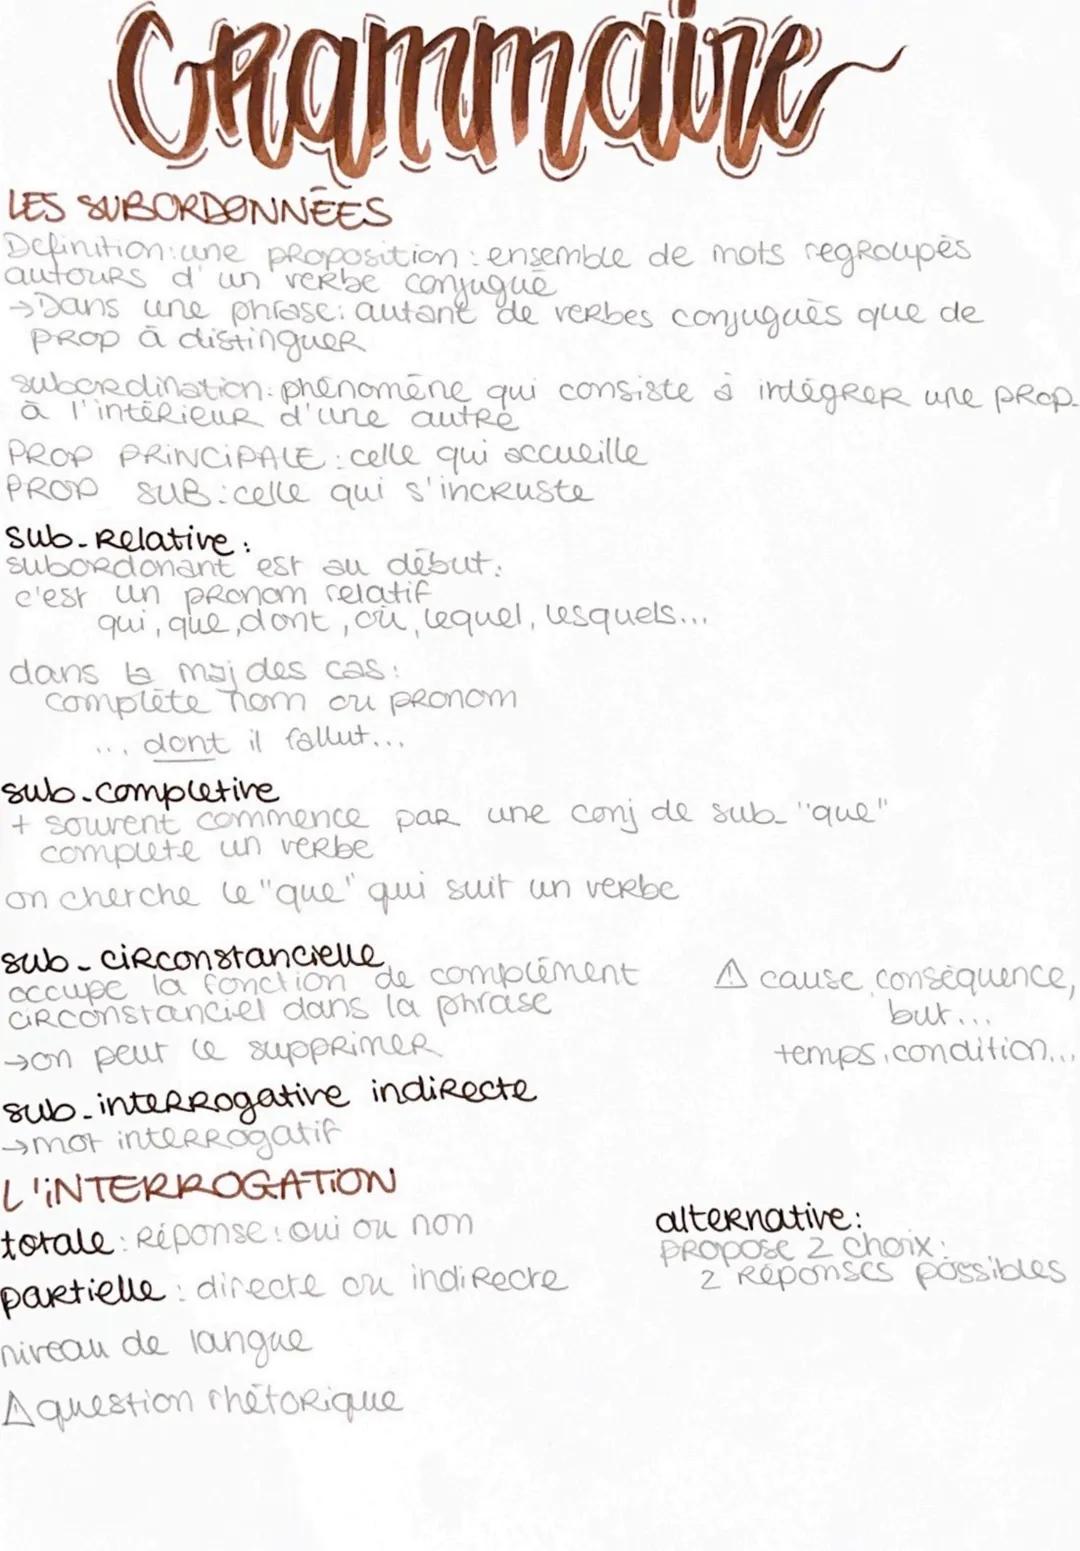 Grammaire
LES SUBORDONNÉES
Definition: une proposition: ensemble de mots regroupés
autours d'un verbe conjugué
→Dans une phrase: autant de verbes conjugués que de
PROP à distinguer
subordination: phénomène qui consiste à intégrer une prop.
à l'intérieur d'une autre
PROP PRINCIPALE: celle qui accueille
PROP SUB: celle qui s'incruste
sub-relative:
subordonant est au début:
c'est un pronom relatif
qui, que, dont, où, lequel, lesquels...
dans la maj des cas:
complète nom ou pronom
... dont il fallut...
sub-completive
+ souvent commence par une conj de sub- "que"
complete un verbe
on cherche le "que" qui suit un verbe
sub-circonstancielle
occupe la fonction de complément
circonstanciel dans la phrase
→on peut le supprimer
⚠ cause, conséquence,
but...
temps, condition...
sub-interrogative indirecte
→mot interrogatif
L'INTERROGATION
totale: Réponse: oui ou non
partielle: directe ou indirecte
alternative:
propose 2 choix:
2 Réponses possibles
niveau de langue
⚠ question rhétorique